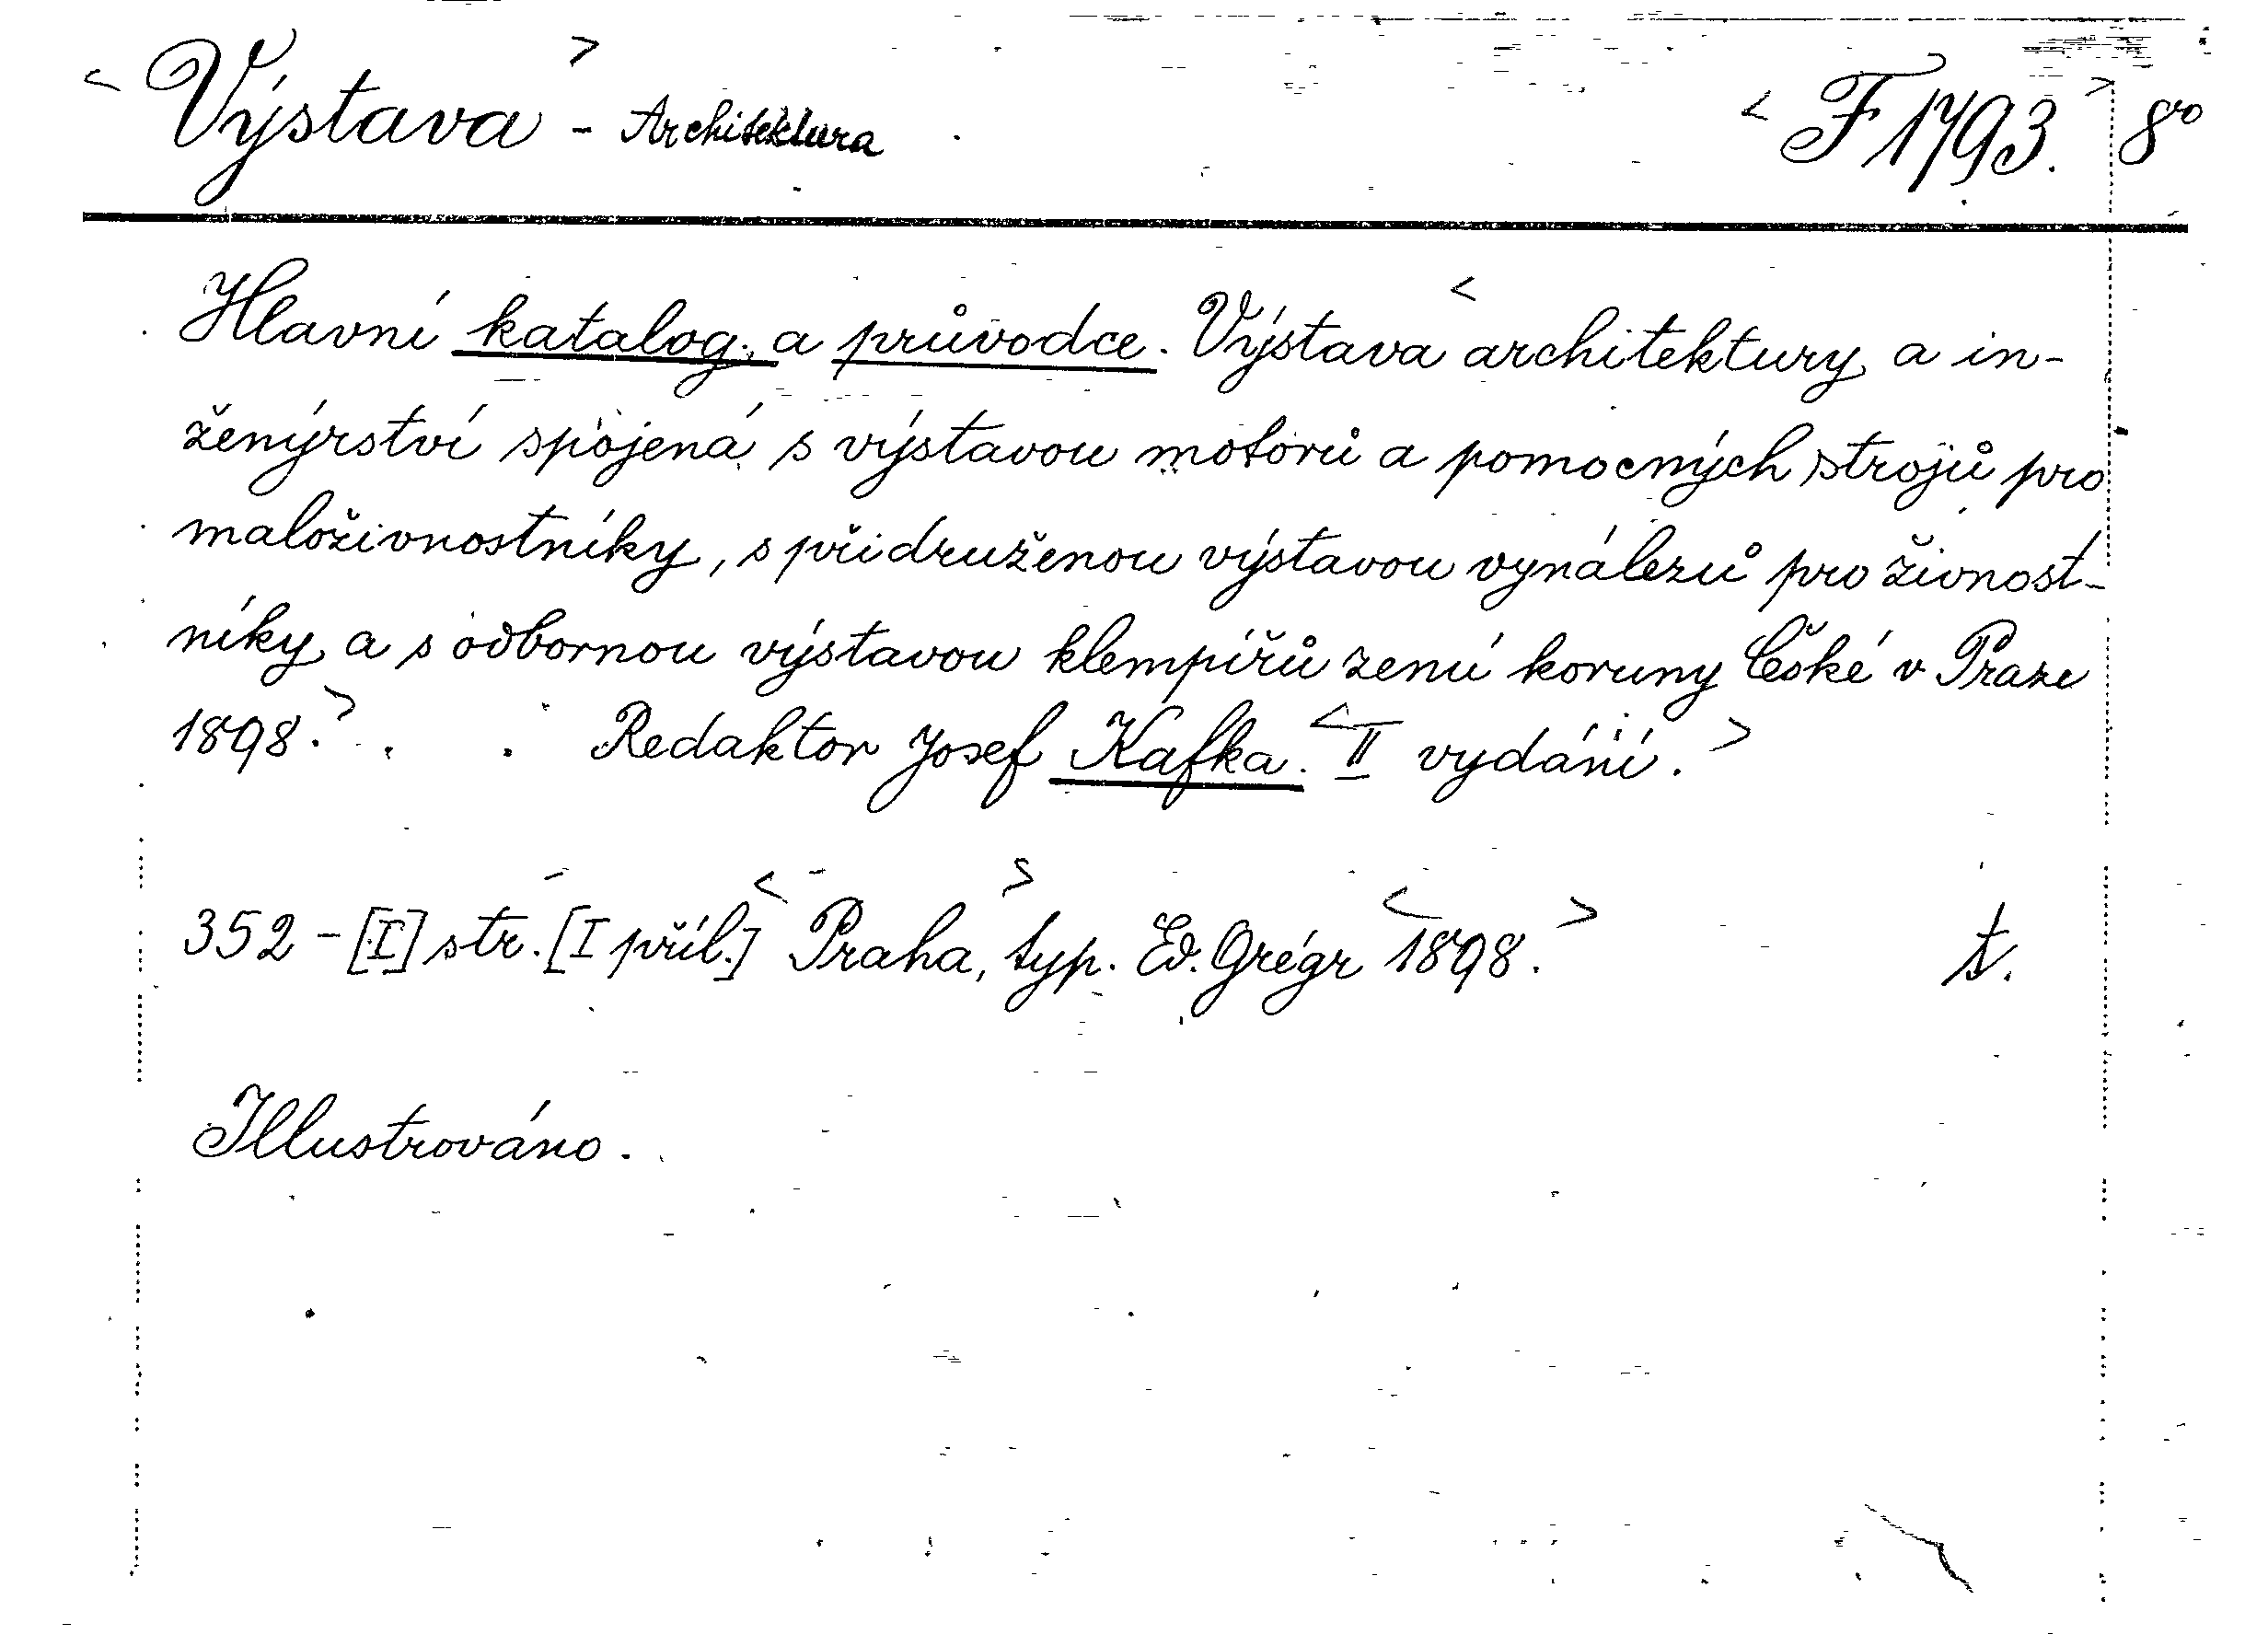 < Výstava > - Architektura < F 1793. > 8vo
Hlavní katalog a průvodce. Výstava < architektury a in-
ženýrství spojená s výstavou motorů a pomocných strojů pro
maloživnostníky, s přidruženou výstavou vynálezů pro živnost-
níky a s odbornou výstavou klempířů zemí koruny České v Praze
1898. > Redaktor Josef Kafka. < II vydání. >
352 - [I] str. [I příl.] < Praha, > typ. Ed. Grégr < 1898. > t.
Illustrováno.